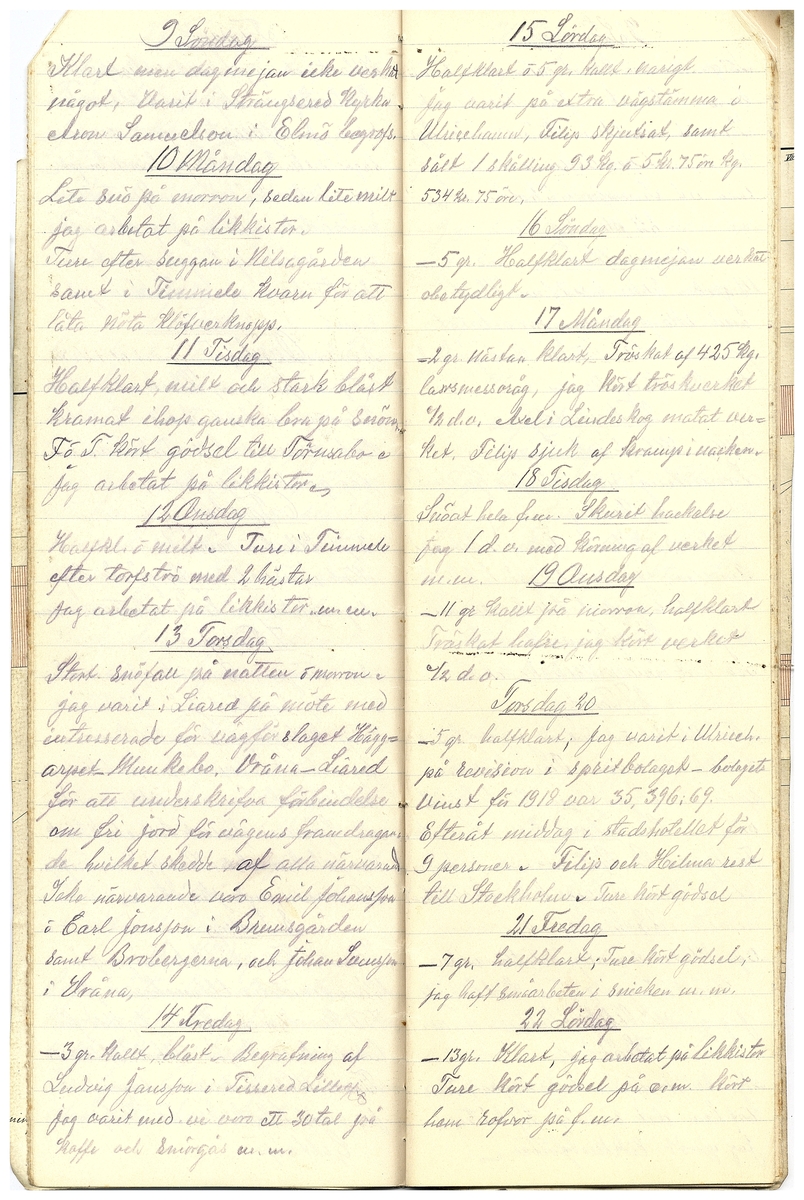 9 Söndag
Klart men dagmejan icke verkat
något, Varit i Strängsered Kyrka
Aron Samuelson i Elmö begrofs.
10 Måndag
Lite snö på morron, sedan lite milt
jag arbetat på likkistor.
Ture efter suggan i Nilsagården
samt i Timmele kvarn för att
låta nöta klöfverknopp.
11 Tisdag
Halfklart, milt och stark blåst
kramat ihop ganska bra på snön,
F ö T. kört gödsel till Törnsabo
jag arbetat på likkistor.
12 Onsdag
Halfkl. ö milt. Ture i Timmele
efter torfströ med 2 hästar
jag arbetat på likkistor m.m.
13 Torsdag
Stort snöfall på natten ö morron
jag varit i Liared på möte med
intresserade för vägförslaget Hägg=
arpet - Munkebo, Vråna - Liared
för att underskrifva förbindelse
om fri jord för vägens framdragan=
de hvilket skedde af alla närvarand
Icke närvarande voro Emil Johansson
ö Carl Jonsson i Bremsgården
samt Brobergerna, och Johan Svensson
i Vråna,
14 Fredag
-3 gr. kallt, blåst - Begrafning af
Ludvig Jansson i Tissered
jag varit med vi voro ett 30 tal på
kaffe och smörgås m.m.
15 Lördag
Halfklart ö 5 gr. kallt, varigt
jag varit på extra vägstämma i
Ulricehamn, Filip skjutsat, samt
sålt 1 skälling 93 kg. ö 5 kr. 75 öre kg.
534 kr. 75 öre.
16 Söndag
-5 gr. Halfklart dagmejan verkat
obetydligt.
17 Måndag
-2 gr. nästan klart, Tröskat af 425 kg.
larsmessoråg, jag kört tröskverket
1/2 d.v. Axel i Lindeskog matat ver=
ket. Filip sjuk af kramp i nacken.
18 Tisdag
Snöat hela f.m. Skurit hackelse
jag 1 d.v. med körning af verket
m.m.
19 Onsdag
-11 gr kallt på morron, halfklart
Tröskat hafre, jag kört verket
1/2 d.v.
Torsdag 20
-5 gr. halfklart; jag varit i Ulriceh.
på Revision i spritbolaget - bolagets
vinst för 1918 var 35,396:69.
Efteråt middag i stadshotellet för
9 personer. Filip och Hilma rest
till Stockholm. Ture kört gödsel
21 Fredag
-7 gr. halfklart; Ture kört gödsel;
jag haft småarbeten i snicken m.m.
22 Lördag
-13 gr. Klart, jag arbetat på likkistor
Ture kört gödsel på e.m. kört
hem rofvor på f.m.